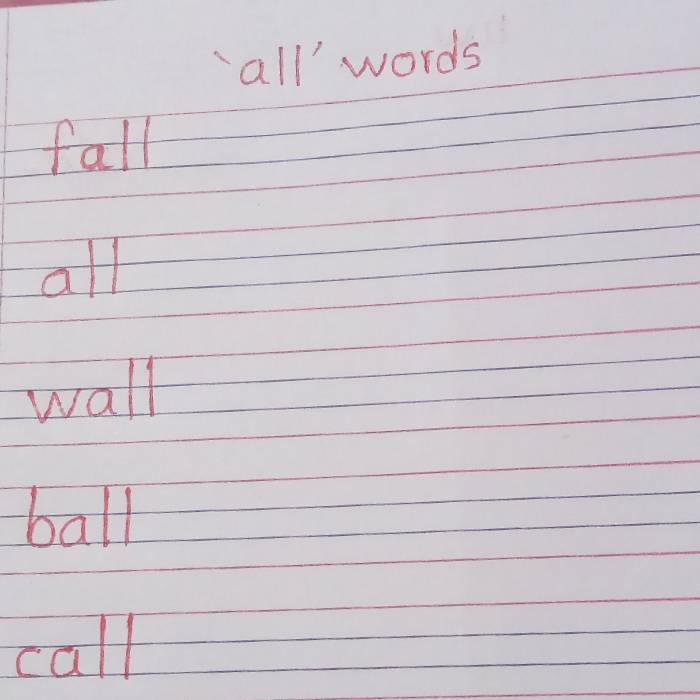 ‘all’ words
fall
all
wall
ball
call